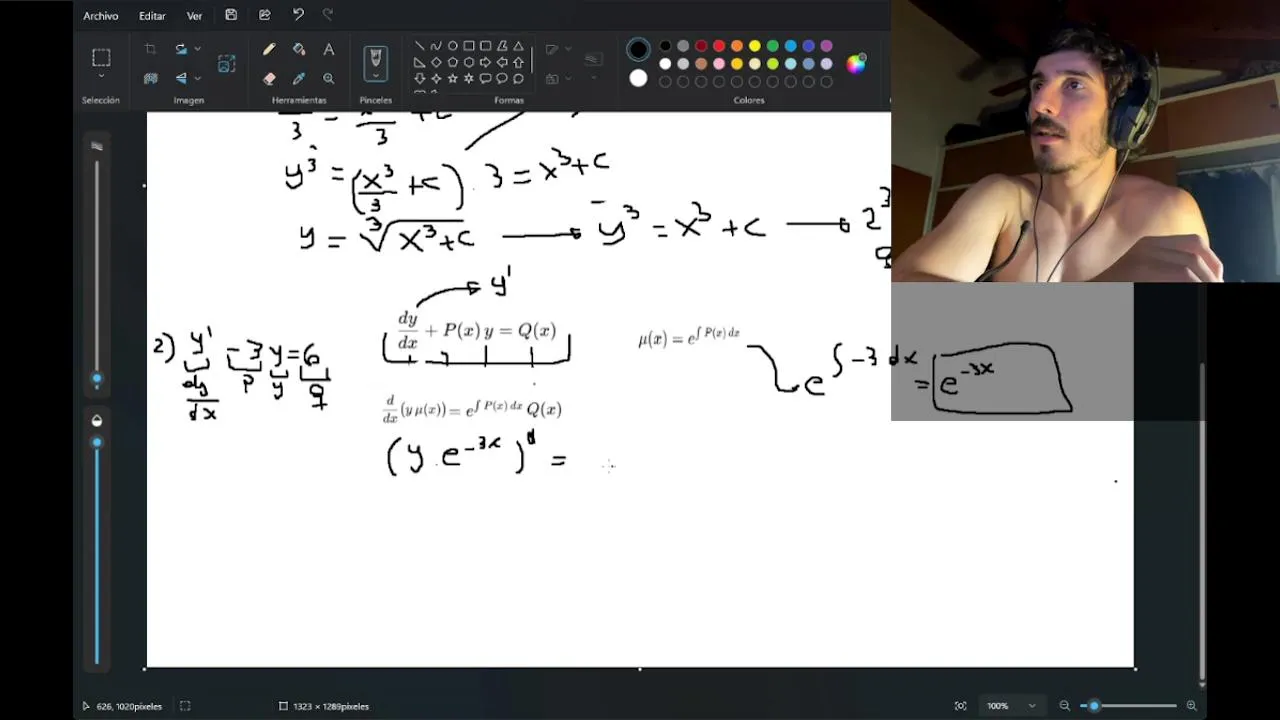 Archivo Editar Ver
Selección Imagen Herramientas Pinceles Formas Colores
3 = 3 + c
y³ = (x³/3 + c) 3 = x³ + c
y = ∛(x³ + c) → y³ = x³ + c → 2³
y'
dy/dx + P(x) y = Q(x)
μ(x) = e^∫ P(x) dx
e^∫ -3 dx = e^-3x
2) y' - 3 y = 6
dy/dx P y q
d/dx (y μ(x)) = e^∫ P(x) dx Q(x)
(y . e^-3x)' =
626, 1020píxeles 1323 × 1289píxeles 100%